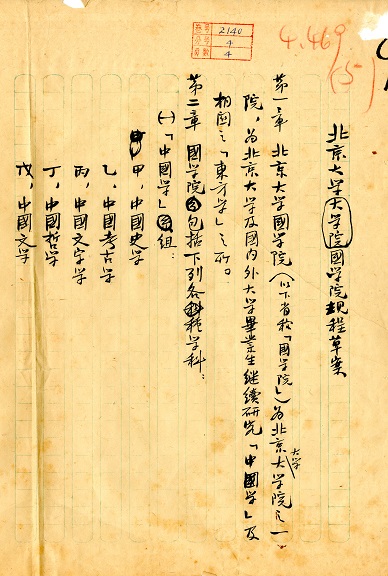 北京大学大学院國学院規程草案
第一章 北京大学國学院（以下省称「國学院」）為北京大学大学院之一
院，為北京大学及國内外大学畢業生继續研究「中國学」及
相関之「東方学」之所。
第二章 國学院包括下列各種学科：
㈠「中國学」組：
甲，中國史学
乙，中國考古学
丙，中國文字学
丁，中國哲学
戊，中國文学
2140
4
4
4.469
(5)